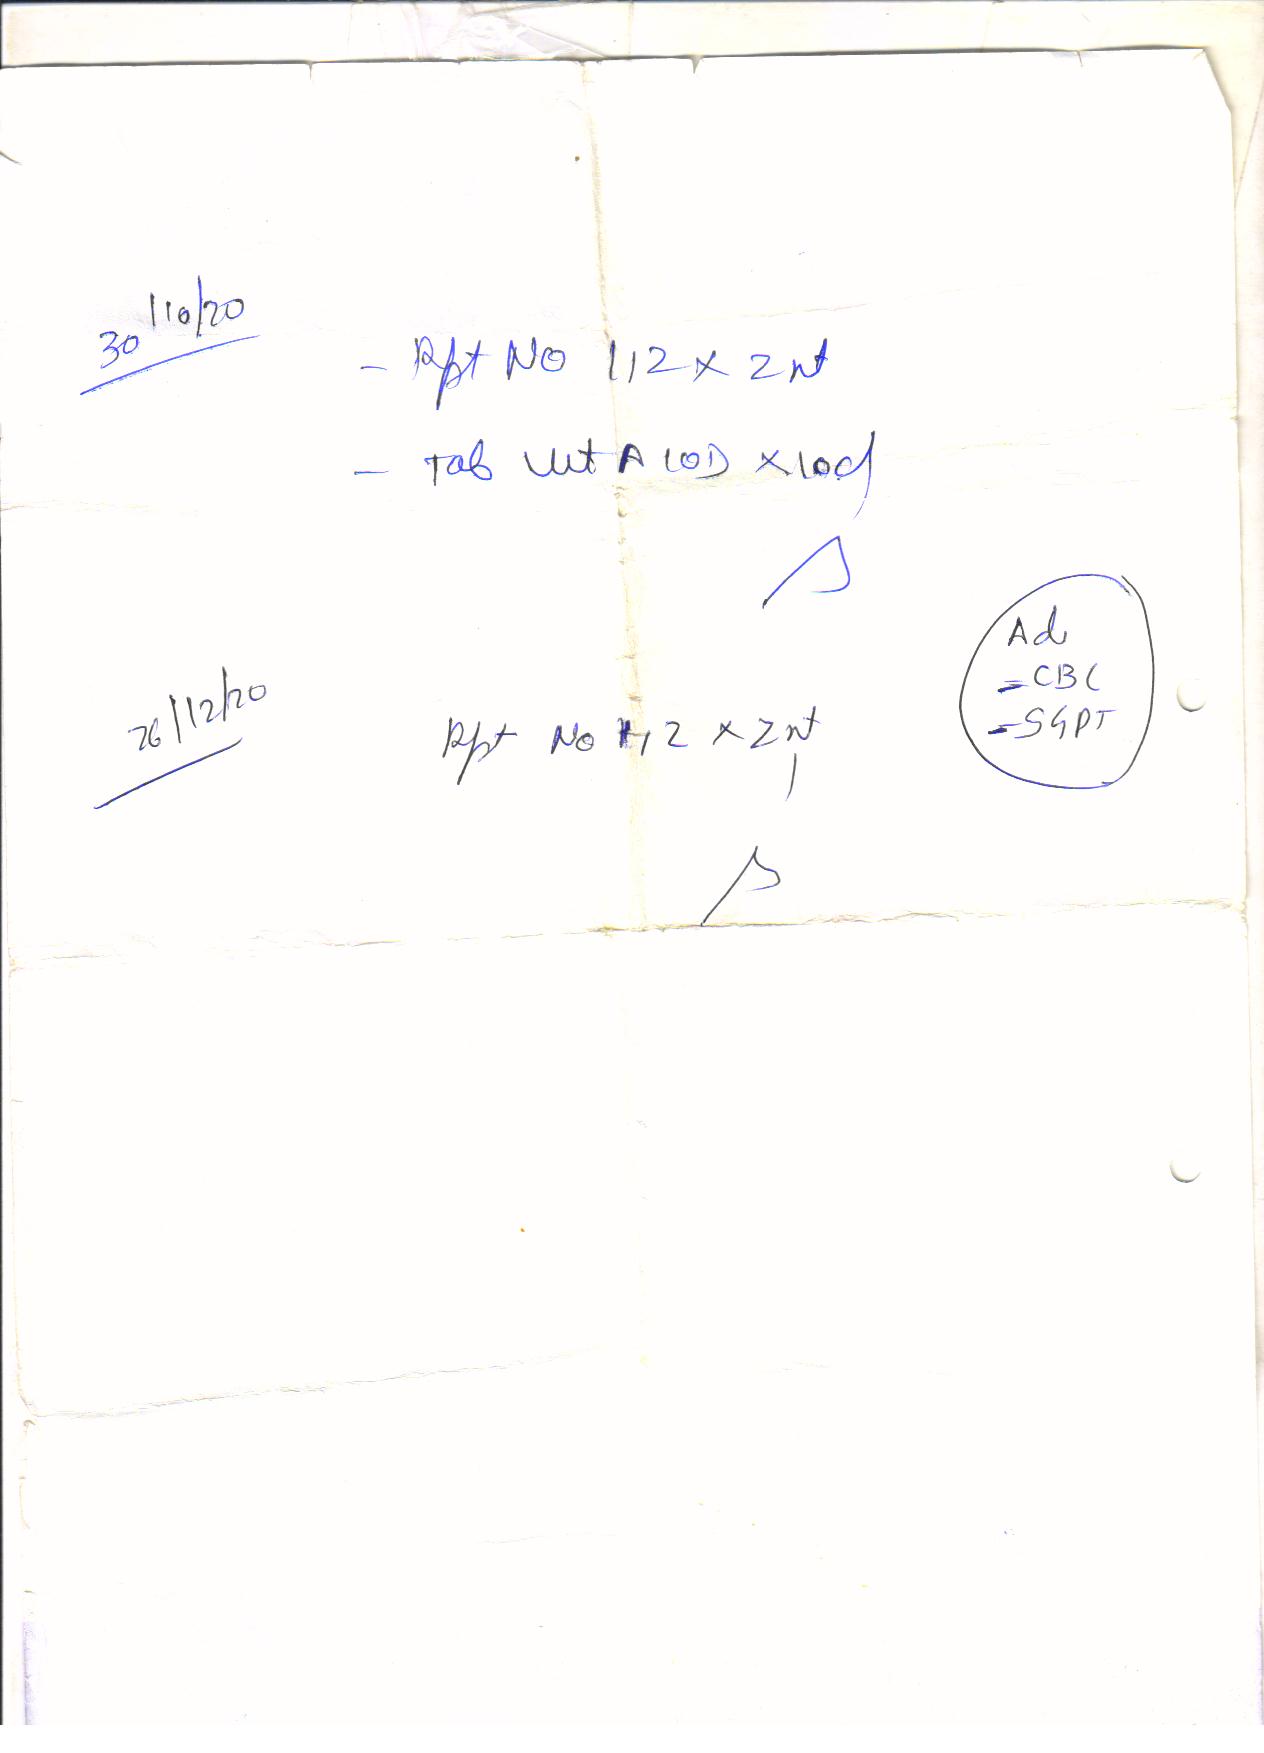 30/10/20
- Rpt No 1,2 x 2 nt
- Tab Vit A 1 OD x 10d
Ad
- CBC
- SGPT
26/12/20
Rpt No 1,2 x 2 nt